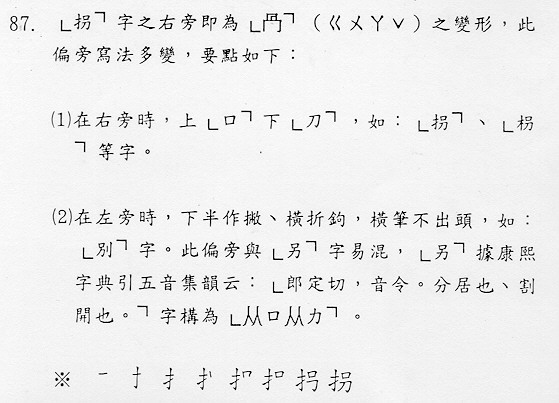 87. 「拐」字之右旁即為「冎」（ㄍㄨㄚˇ）之變形，此
偏旁寫法多變，要點如下：
⑴在右旁時，上「口」下「刀」，如：「拐」、「枴
」等字。
⑵在左旁時，下半作撇、橫折鉤，橫筆不出頭，如：
「別」字。此偏旁與「另」字易混，「另」據康熙
字典引五音集韻云：「郎定切，音令。分居也、割
開也。」字構為「从口从力」。
※ 一 扌 扣 拐